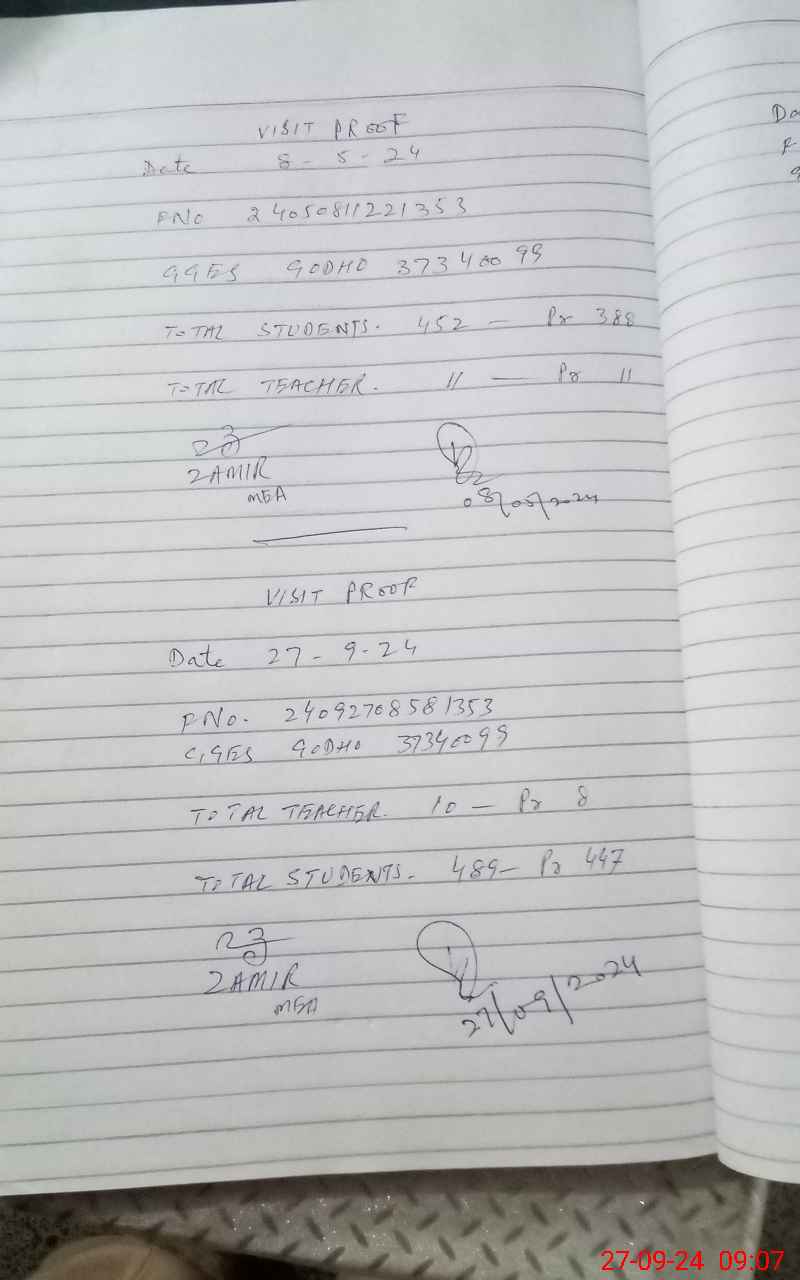 VISIT PROOF
Date 8-5-24
FNo 24050811221353
GGES GODHO 37340099
TOTAL STUDENTS. 452 - Pr 388
TOTAL TEACHER. 11 - Pr 11
ZAMIR
MEA
08/05/2024
VISIT PROOF
Date 27-9-24
FNo. 24092708581353
GGES GODHO 37340099
TOTAL TEACHER. 10 - Pr 8
TOTAL STUDENTS. 489 - Pr 447
ZAMIR
MEA
27/09/2024
27-09-24 09:07